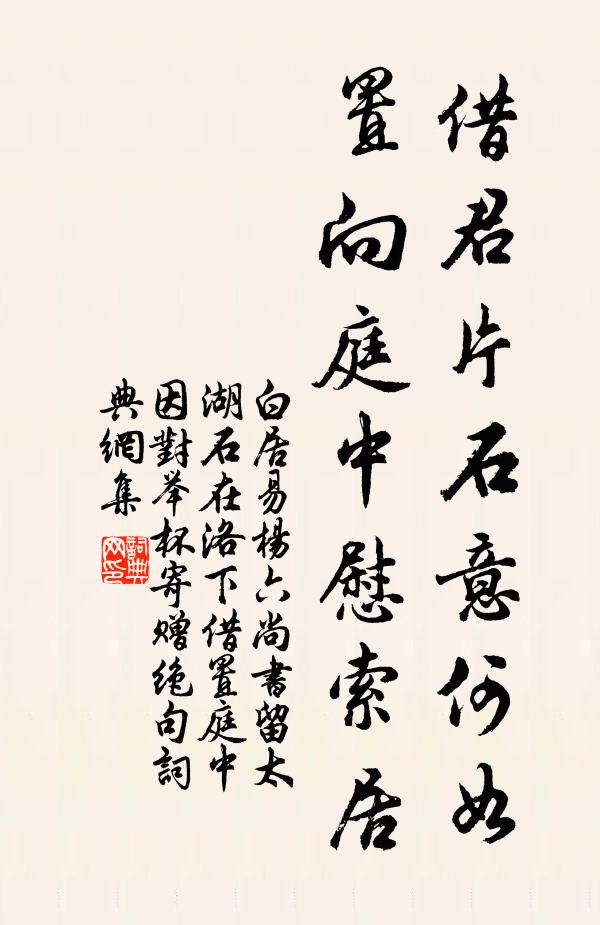 借君片石意何如
置向庭中慰索居
白居易楊六尚書留太
湖石在洛下借置庭中
因對举杯寄贈绝句詞
典網集
詞典
网印